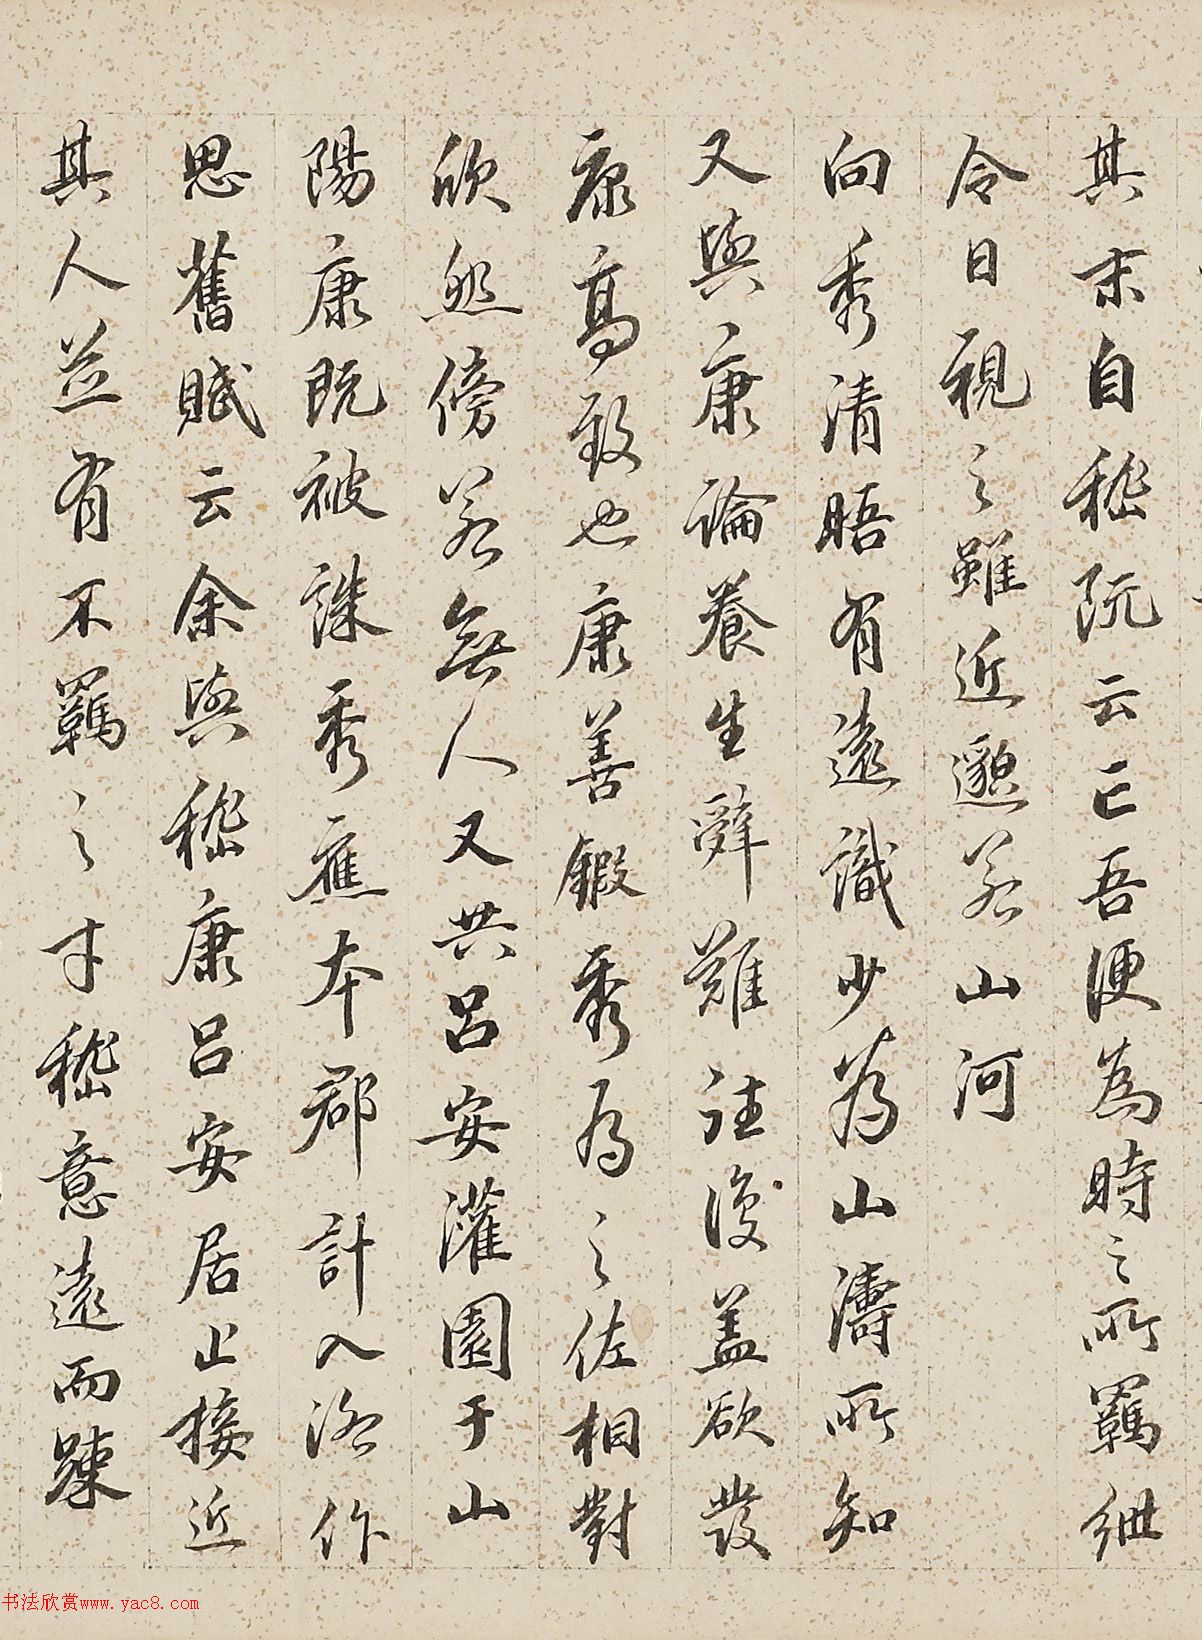 其末自嵇阮云亡吾便為時之所羈紲
今日視之雖近邈若山河
向秀清晤有遠識少為山濤所知
又與康論養生辭難往復蓋欲發
康高致也康善鍛秀為之佐相對
欣然傍若無人又共呂安灌園于山
陽康既被誅秀應本郡計入洛作
思舊賦云余與嵇康呂安居止接近
其人並有不羈之才嵇意遠而踈
书法欣赏www.yac8.com